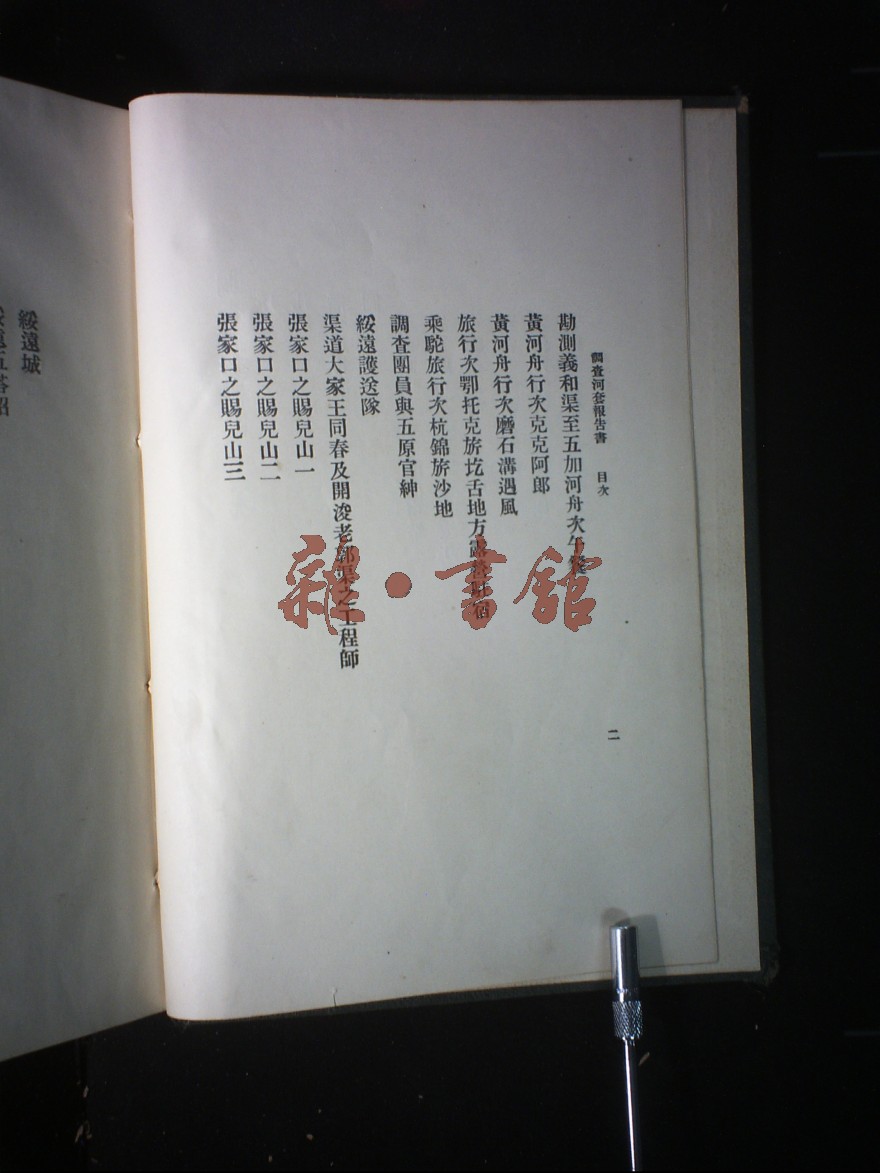 調查河套報告書 目次 二
勘測義和渠至五加河舟次午餐
黃河舟行次克克阿郎
黃河舟行次磨石溝遇風
旅行次鄂托克旂圪舌地方露營
乘駝旅行次杭錦旂沙地
調查團員與五原官紳
綏遠護送隊
渠道大家王同春及開浚老郭渠之工程師
張家口之賜兒山一
張家口之賜兒山二
張家口之賜兒山三
綏遠城
綏遠五塔召
雜·書館